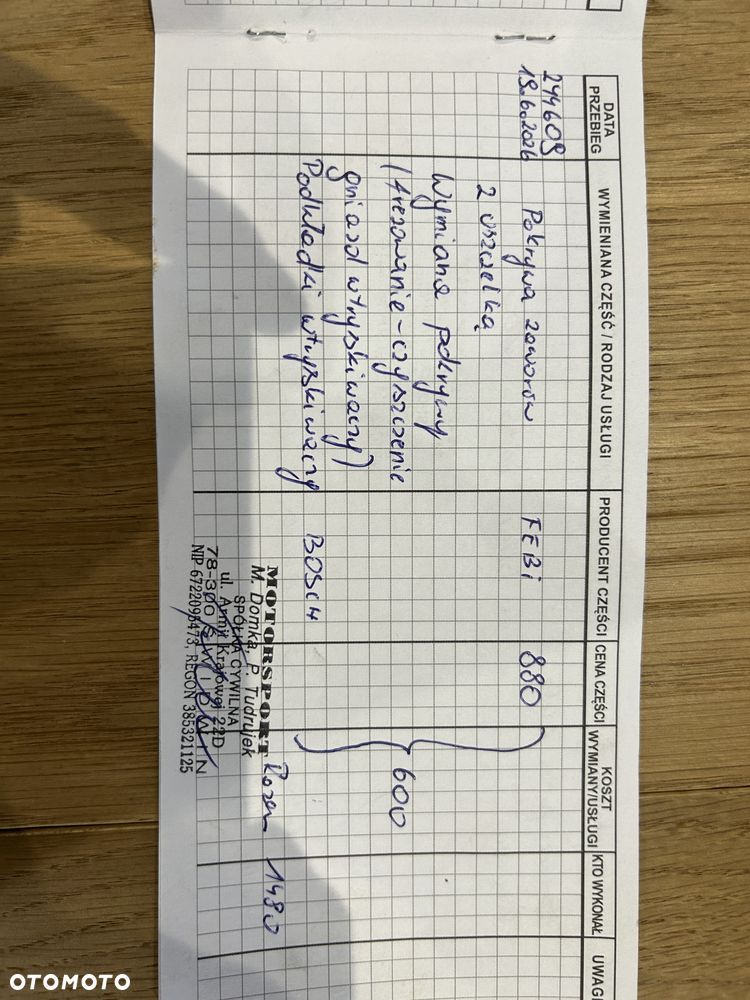 DATA
PRZEBIEG
WYMIENIANA CZĘŚĆ / RODZAJ USŁUGI
PRODUCENT CZĘŚCI
CENA CZĘŚCI
KOSZT
WYMIANY/USŁUGI
KTO WYKONAŁ
UWAG
19.6.2026
244609
Pokrywa zaworów
z uszczelką
FEBI
880
Wymiana pokrywy
(frezowanie - czyszczenie
gniazd wtryskiwaczy)
600
Podkładki wtryskiwaczy
BOSCH
Razem 1480
MOTORSPORT
M. Domka, P. Tudrujek
SPÓŁKA CYWILNA
ul. Armii Krajowej 22D
78-300 ŚWIDWIN
NIP 6722095473, REGON 385321125
OTOMOTO